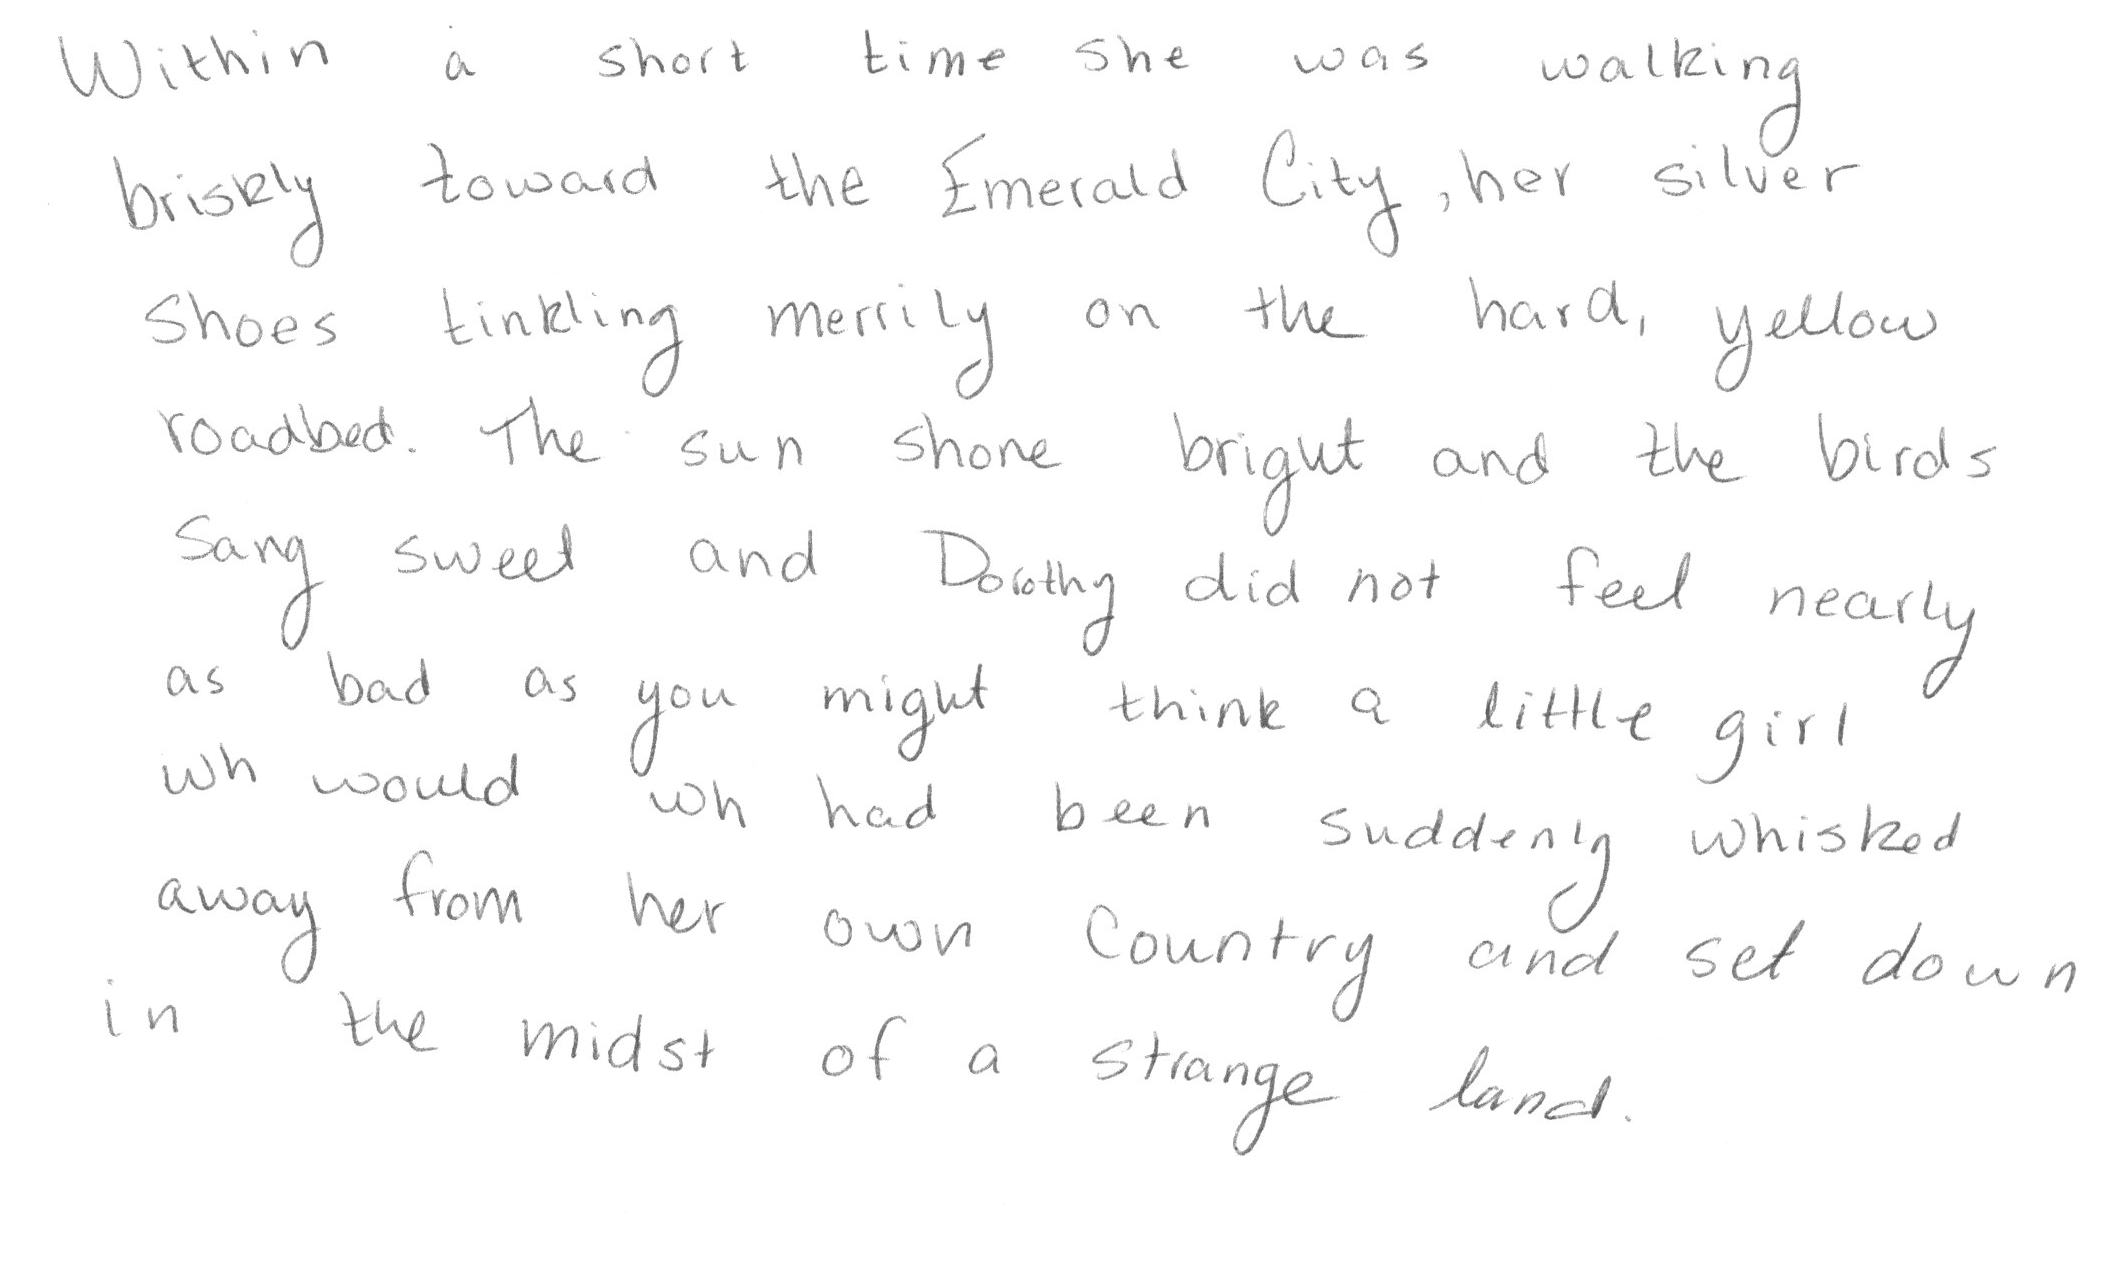 Within a short time she was walking
briskly toward the Emerald City, her silver
Shoes tinkling merrily on the hard, yellow
roadbed. The sun shone bright and the birds
Sang sweet and Dorothy did not feel nearly
as bad as you might think a little girl
wh would wh had been suddenly whisked
away from her own Country and set down
in the midst of a strange land.